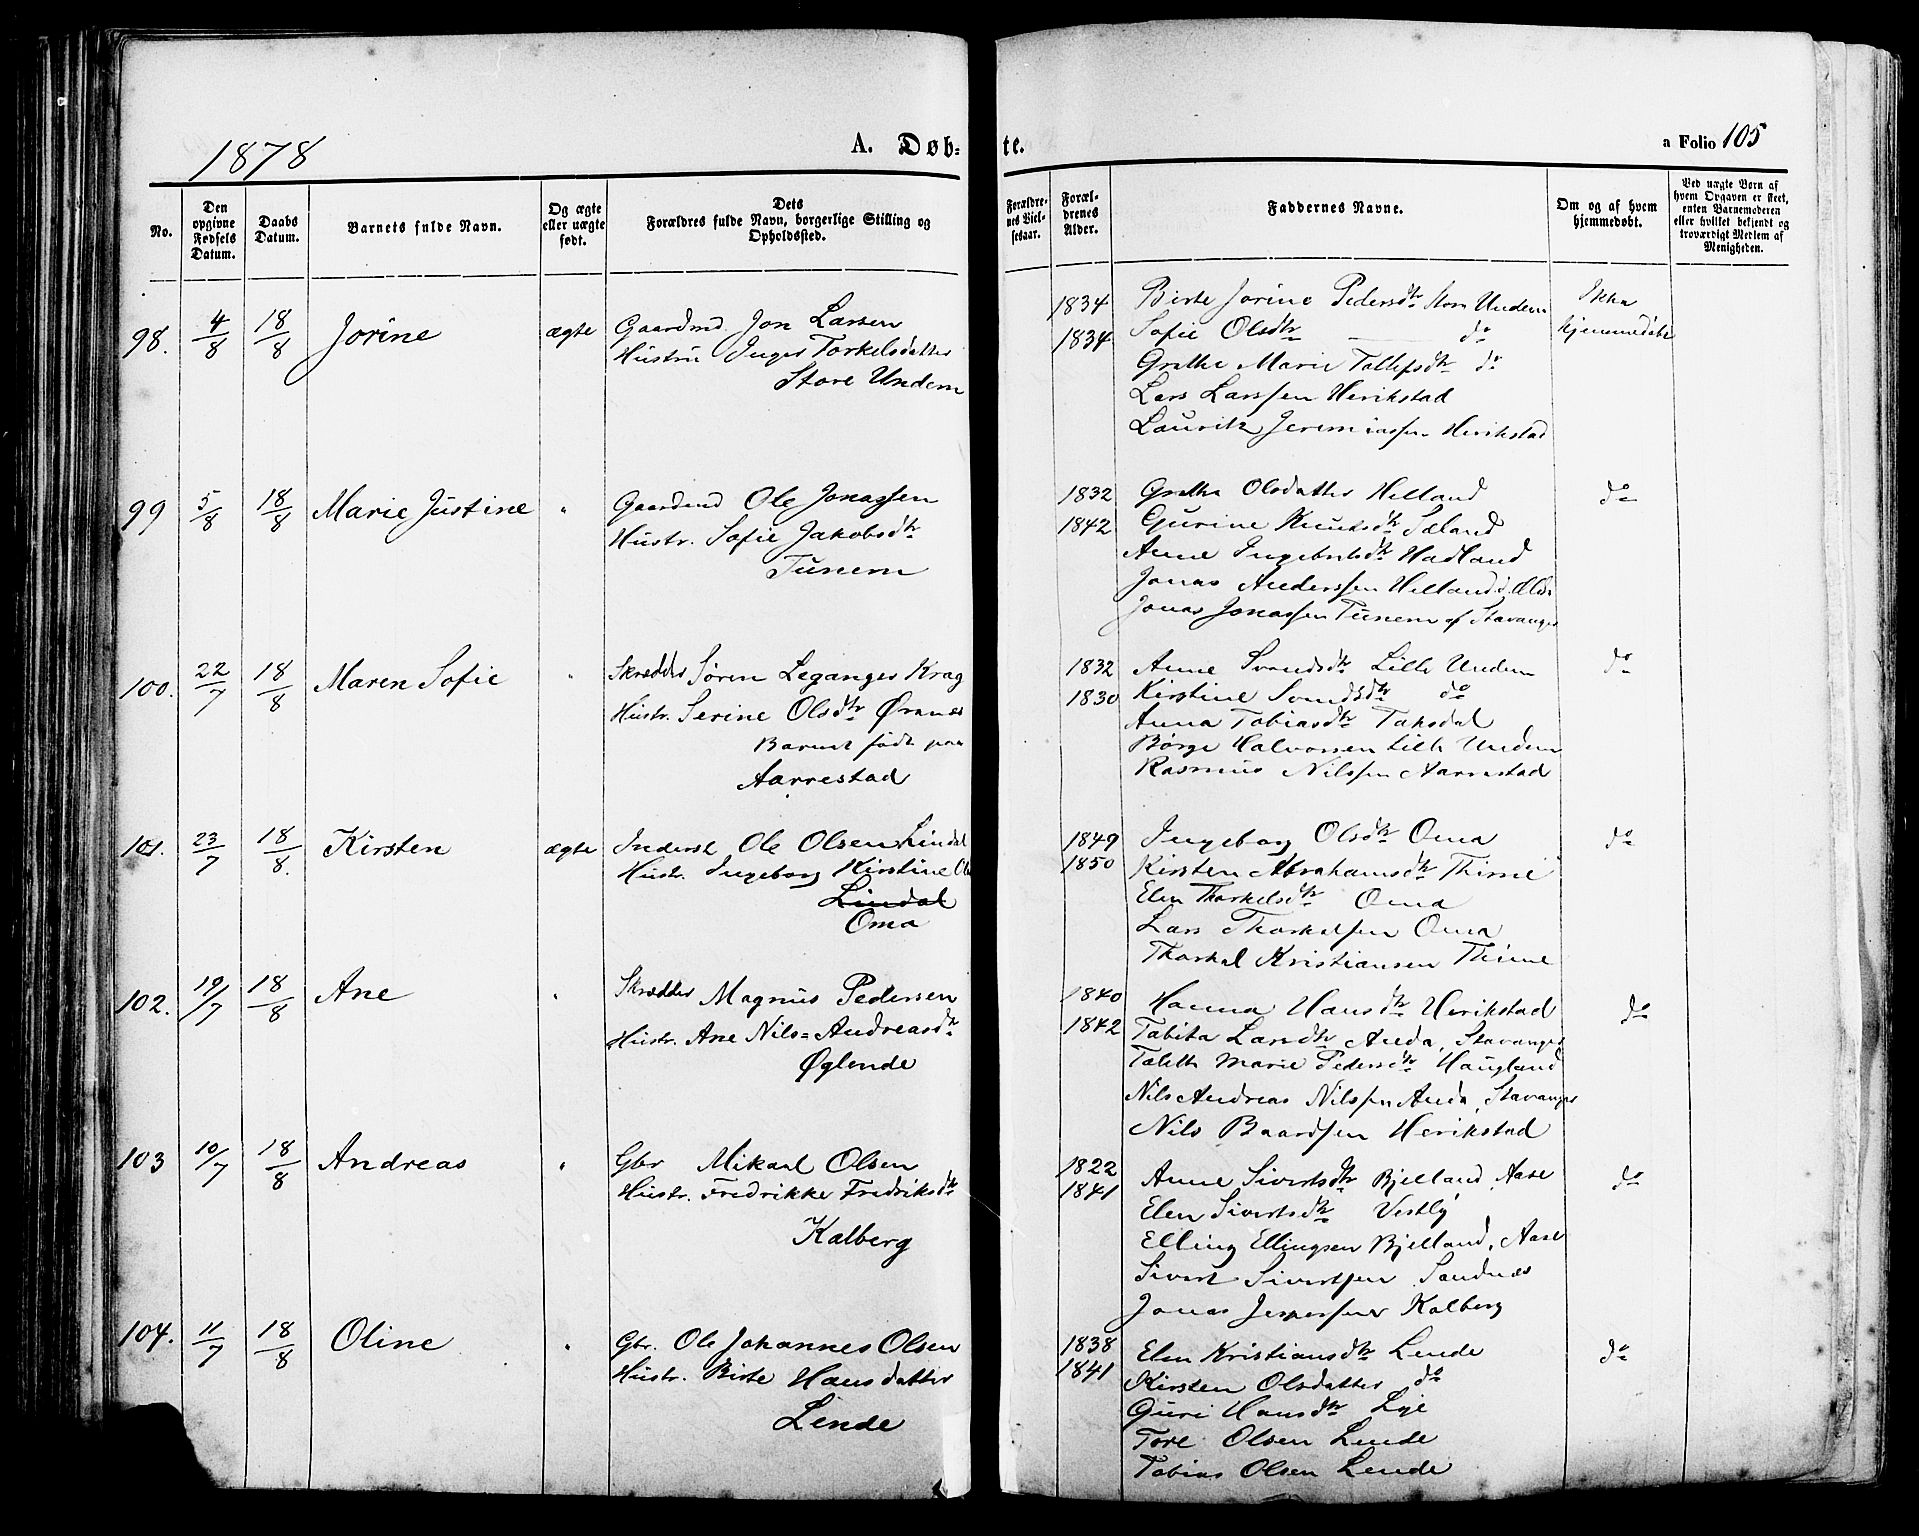 1878
A. Døb-
te.
a Folio 105
No.
Den opgivne Fødsels Datum.
Daabs Datum.
Barnets fulde Navn.
Og ægte eller uægte født.
Dets Forældres fulde Navn, borgerlige Stilling og Opholdssted.
Forældrenes Vielsesaar.
Forældrenes Alder.
Faddernes Navne.
Om og af hvem hjemmedøbt.
Ved uægte Børn af hvem Opgaven er skeet, enten Barnemoderen eller hvilket bekjendt og troværdigt Medlem af Menigheden.
98. 4/8 18/8 Jorine ægte Gaardmd. Jon Larsen
Hustru Inger Torkelsdatter
Store Undem
1834 Birte Jorine Pedersdtr Store Undem Ikke
1834 Sofie Olsdtr do hjemmedøbt
Grethe Marie Tollefsdtr do
Lars Larssen Herikstad
Lauritz Jeremiassen Herikstad
99 5/8 18/8 Marie Justine " Gaardmd Ole Jonassen
Hustr. Sofie Jakobsdtr
Tunem
1832 Grethe Olsdatter Helland do
1842 Gurine Knutsdtr Sæland
Anne Ingebretsdtr Hadland
Jonas Anderssen Helland
Jonas Jonassen Tunem af Stavanger
100. 22/7 18/8 Maren Sofie " Skrædder Søren Leganger Krag
Hustr. Serine Olsdtr Ørænes
Barnet født paa
Aarrestad
1832 Anne Svendsdtr Lille Undem do
1830 Kirstine Svendsdtr do
Anna Tobiasdtr Taksdal
Børge Halvorsen Lille Undem
Rasmus Nilssen Aarrestad
101. 23/7 18/8. Kirsten ægte Inderst Ole Olsen Lindal
Hustr. Ingeborg Kirstine
Lindal
Oma
1849 Ingeborg Olsdtr Oma do
1850 Kirsten Abrahamsdtr Thime
Elen Thorkelsdtr Oma
Lars Thorkelsen Oma
Thorkel Kristiansen Thime
102. 19/7 18/8 Ane " Skrædder Magnus Pedersen
Hustr. Ane Nils=Andreasdtr
Øglende
1840 Hanna Hansdtr Herikstad do
1842 Tabita Larsdtr Auda, Stavanger
Taleth Marie Pedersdtr Haugland
Nils Andreas Nilssen Auda, Stavanger
Nils Baardsen Herikstad
103 10/7 18/8 Andreas " Gbr Mikael Olsen
Hustr. Fredrikke Fredriksdtr
Kalberg
1822 Anne Sivertsdtr Bjelland, Aase do
1841 Elen Sivertsdtr Vestly
Elling Ellingsen Bjelland, Aase
Sivert Sivertsen Sandnæs
Jonas Jesperssen Kalberg
104. 11/7 18/8 Oline " Gbr. Ole Johannes Olsen
Hustr. Birte Hansdatter
Lende
1838 Elen Kristiansdtr Lende do
1841 Kirsten Olsdatter do
Guri Hansdtr Lye
Tore Olsen Lende
Tobias Olsen Lende